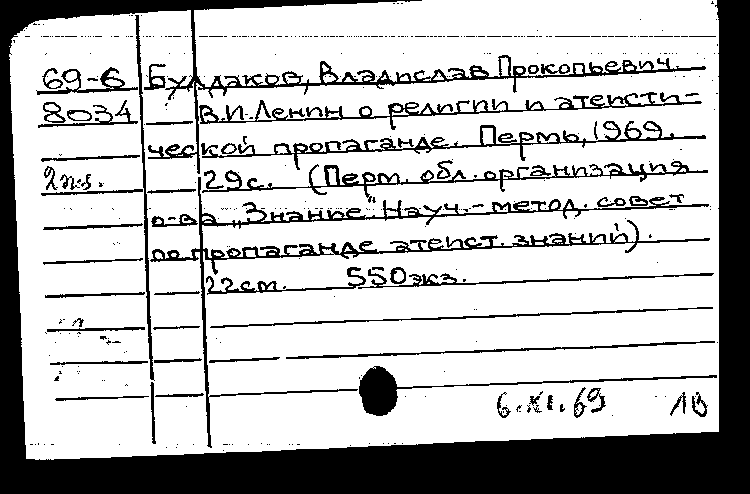 69-6 Булдаков, Владислав Прокопьевич.
8034 В.И.Ленин о религии и атеисти-
ческой пропаганде. Пермь, 1969.
2 экз. 29с. (Перм. обл. организация
о-ва „Знание". Науч.-метод. совет
по пропаганде атеист. знаний).
22см. 550экз.
6.XI.69 10